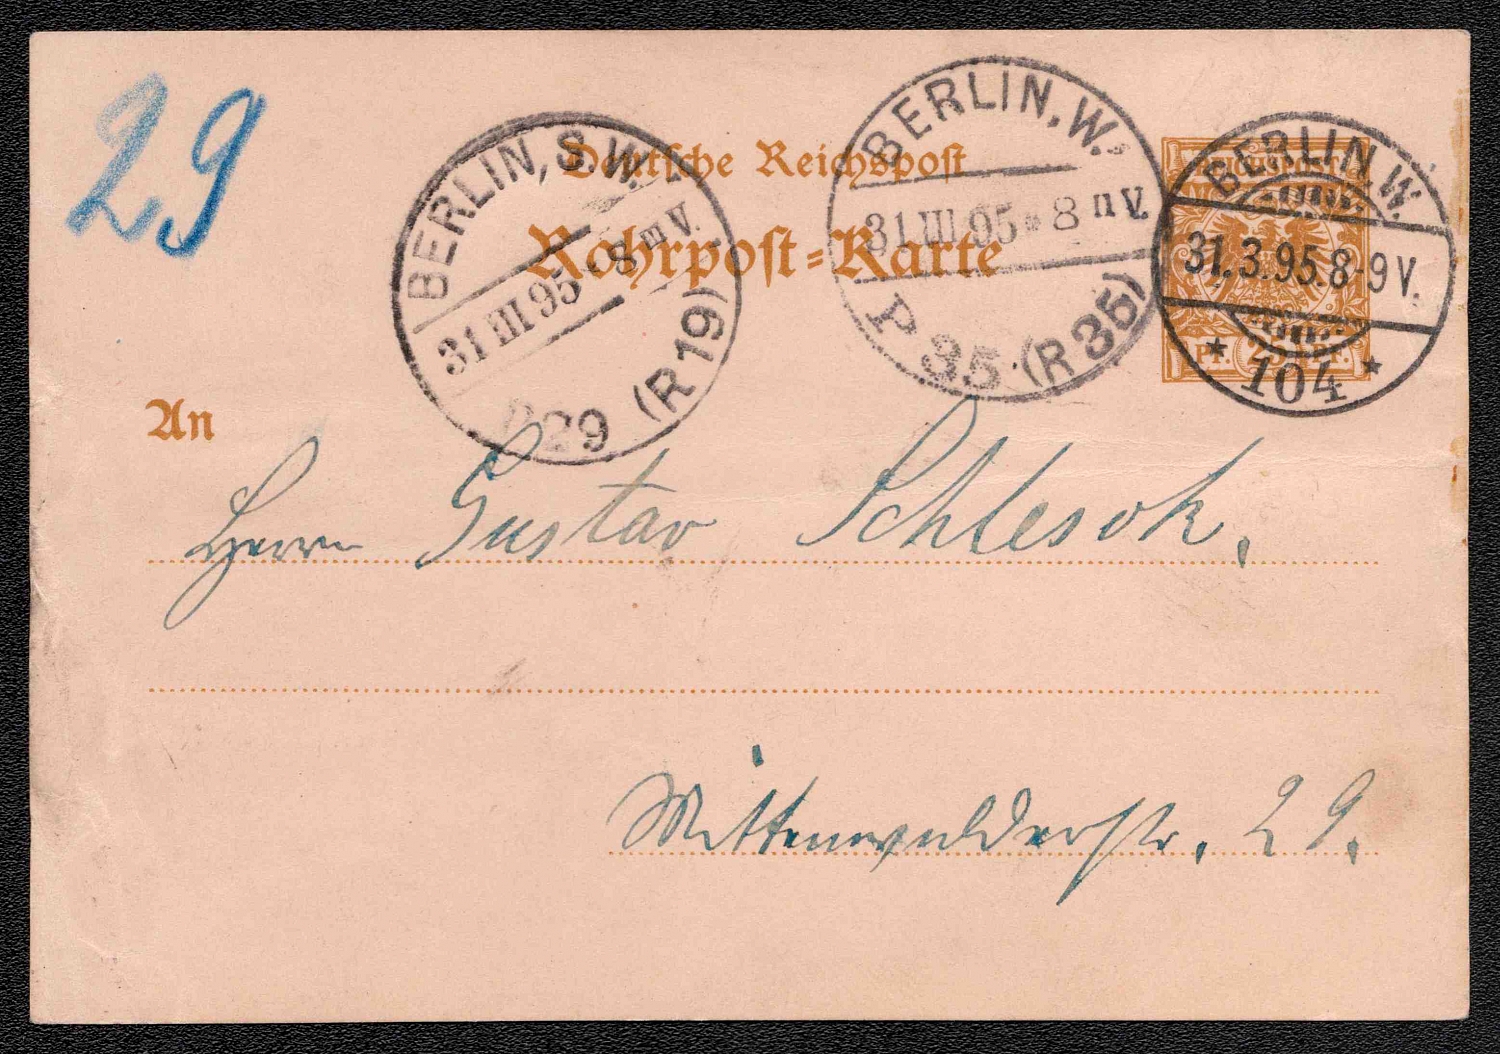 29
Deutsche Reichspost
Rohrpost=Karte
BERLIN, S.W.
31 III 95 8 m V.
P 29 (R 19)
BERLIN, W.
31 III 95 8 n V.
P 35 (R 35)
REICHSPOST
PF. 25 PF.
BERLIN, W.
31.3.95.8-9 V.
* 104 *
An
Herrn Gustav Schlesok.
Mittenwalderstr. 29.